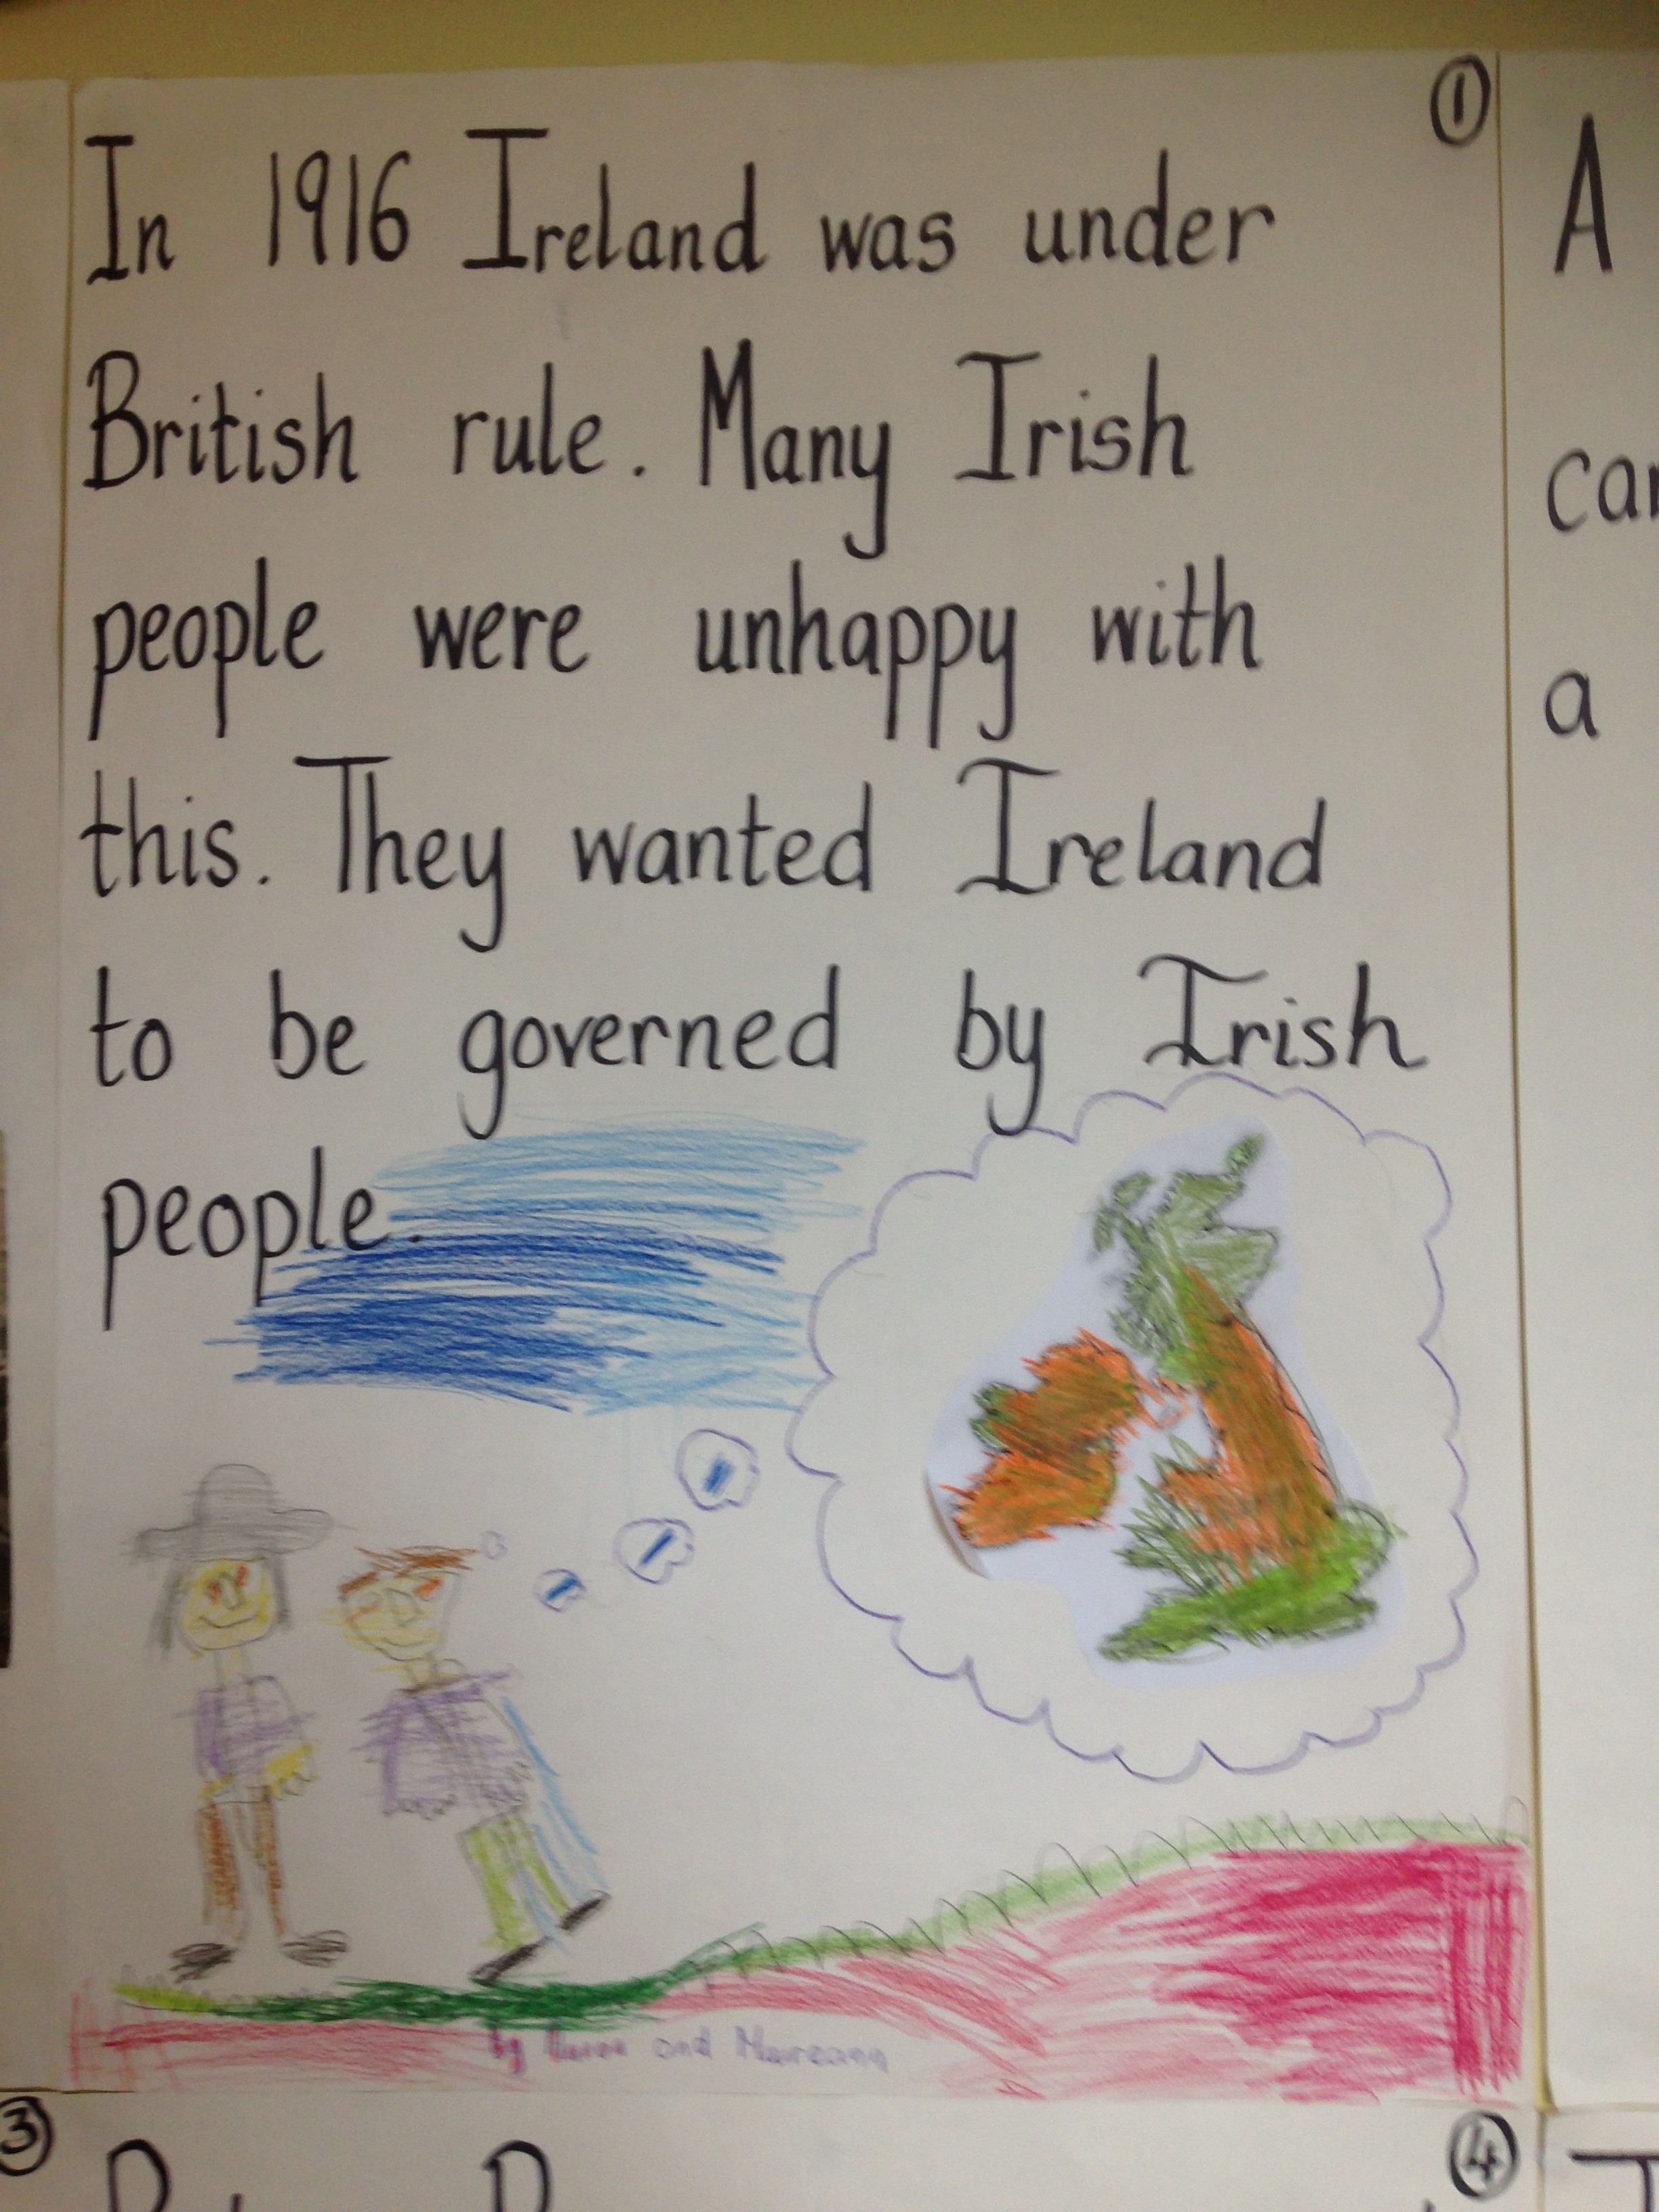 ①
In 1916 Ireland was under
British rule. Many Irish
people were unhappy with
this. They wanted Ireland
to be governed by Irish
people.
by and
A
a
③
④